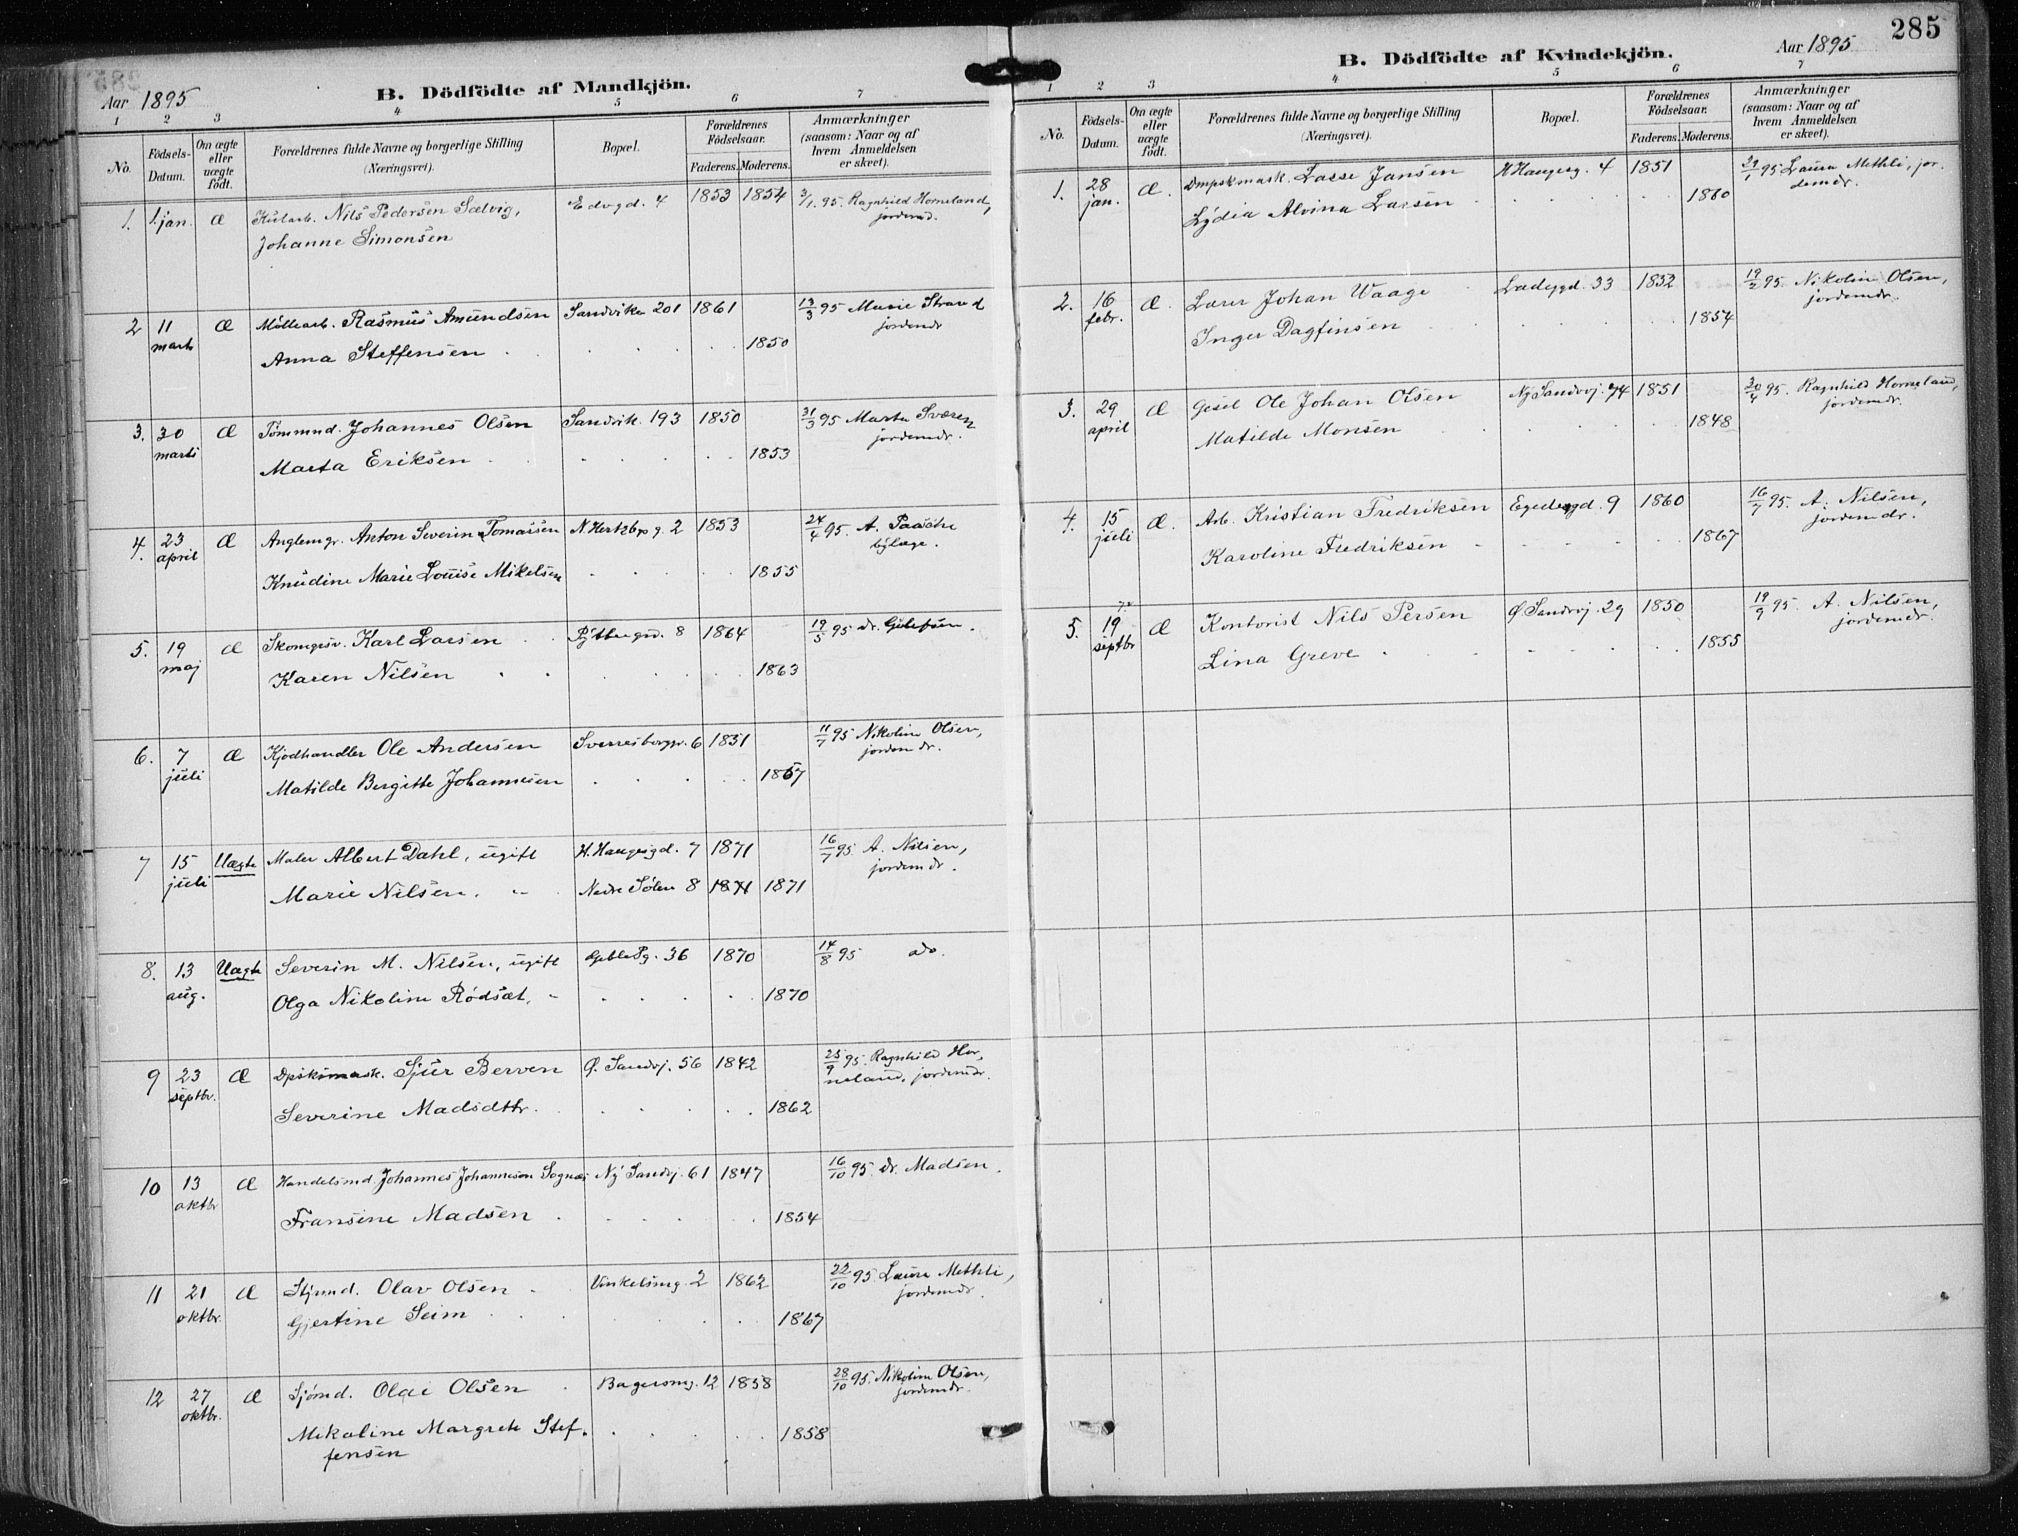 B. Dödfödte af Mandkjön.
Aar 1895
1 2 3 4 5 6 7
No. Födsels-Datum. Om ægte eller uægte födt. Forældrenes fulde Navne og borgerlige Stilling (Næringsvei). Bopæl. Forældrenes Födselsaar. Faderens. Moderens. Anmærkninger (saasom: Naar og af hvem Anmeldelsen er skeet).
1. 1. jan. Æ Nils Pedersen Sælvig, Edvgd. 4 1853 1854 3/1. 95. Ragnhild Horneland,
Johanne Simonsen jordemd.
2 11 Æ Møllearb. Rasmus Amundsen Sandviken 201 1861 13/3 95 Marie Strand
marts Anna Steffensen 1850 jordemdr
3. 30 Æ Tømmmd. Johannes Olsen Sandvik. 193 1850 31/3 95 Marta Sværen
marts Marta Eriksen 1853 jordemdr.
4. 23 Æ Anton Severin Tomassen N. Hertzbg g. 2 1853 24/4 95. A. Paasche
april Knudine Marie Louise Mikelsen 1855 bylæge.
5. 19 Æ Karl Larsen 8 1864 19/5 95 dr.
maj Karen Nilsen 1863
6. 7 Æ Kjødhandler Ole Andersen Sverresborggr. 6 1851 11/7 95 Nikoline Olsen,
juli Matilde Bergitte Johannesen 1867 jordemdr.
7 15 Uægte Maler Albert Dahl, ugift H. Haugesgd. 7 1871 16/7 95. A. Nilsen,
juli Marie Nilsen. " Nedre Sølen 8 1871 1871 jordemdr.
8. 13 Uægte Severin M. Nilsen, ugift 36 1870 14/8 95 do.
aug. Olga Nikoline Rødsæt, " 1870
9 23 Æ Sjur Berven Ø. Sandvj. 56 1842 25/9 95. Ragnhild Hor,
septbr. Severine Madsdtr. 1862 neland, jordemdr.
10 13 Æ Handelsmd. Johannes Johannesen Sognæs Ny Sandvj. 61 1847 16/10 95. dr. Madsen.
oktbr Fransine Madsen 1854
11 21 Æ Olav Olsen Vinkelsmg. 2 1862 22/10 95. Laura Methli,
oktbr. Gjertine Seim 1867 jordemdr.
12 27 Æ Sjømd. Olai Olsen Bagersmg. 12 1858 28/10 95. Nikoline Olsen,
oktbr. Mikaline Margrete Stef. 1858 jordemdr.
fensen
285
B. Dödfödte af Kvindekjön.
Aar 1895
1 2 3 4 5 6 7
No. Födsels-Datum. Om ægte eller uægte födt. Forældrenes fulde Navne og borgerlige Stilling (Næringsvei). Bopæl. Forældrenes Födselsaar. Faderens. Moderens. Anmærkninger (saasom: Naar og af hvem Anmeldelsen er skeet).
1. 28 Æ. Dmpskmask. Lasse Jansen H Haugesg. 4 1851 29/1 95 Laura Methli, jor.
jan. Lydia Alvina Larsen 1860 demdr.
2. 16 Æ Lærer Johan Waage Ladegd. 33 1852 19/2 95. Nikoline Olsen,
febr. Inger Dagfinsen 1854 jordemdr.
3. 29 Æ Gesel Ole Johan Olsen Ny Sandvj. 74 1851 30/4 95. Ragnhild Horneland,
april Matilde Monsen 1848 jordemdr.
4. 15 Æ. Arb. Kristian Fredriksen Egedesgd. 9 1860 16/7 95. A. Nilsen,
juli Karoline Fredriksen 1867 jordemdr.
5. 19 Æ Kontorist Nils Persen Ø. Sandvj. 29 1850 19/9 95. A. Nilsen,
septbr Lina Greve 1855 jordemdr.